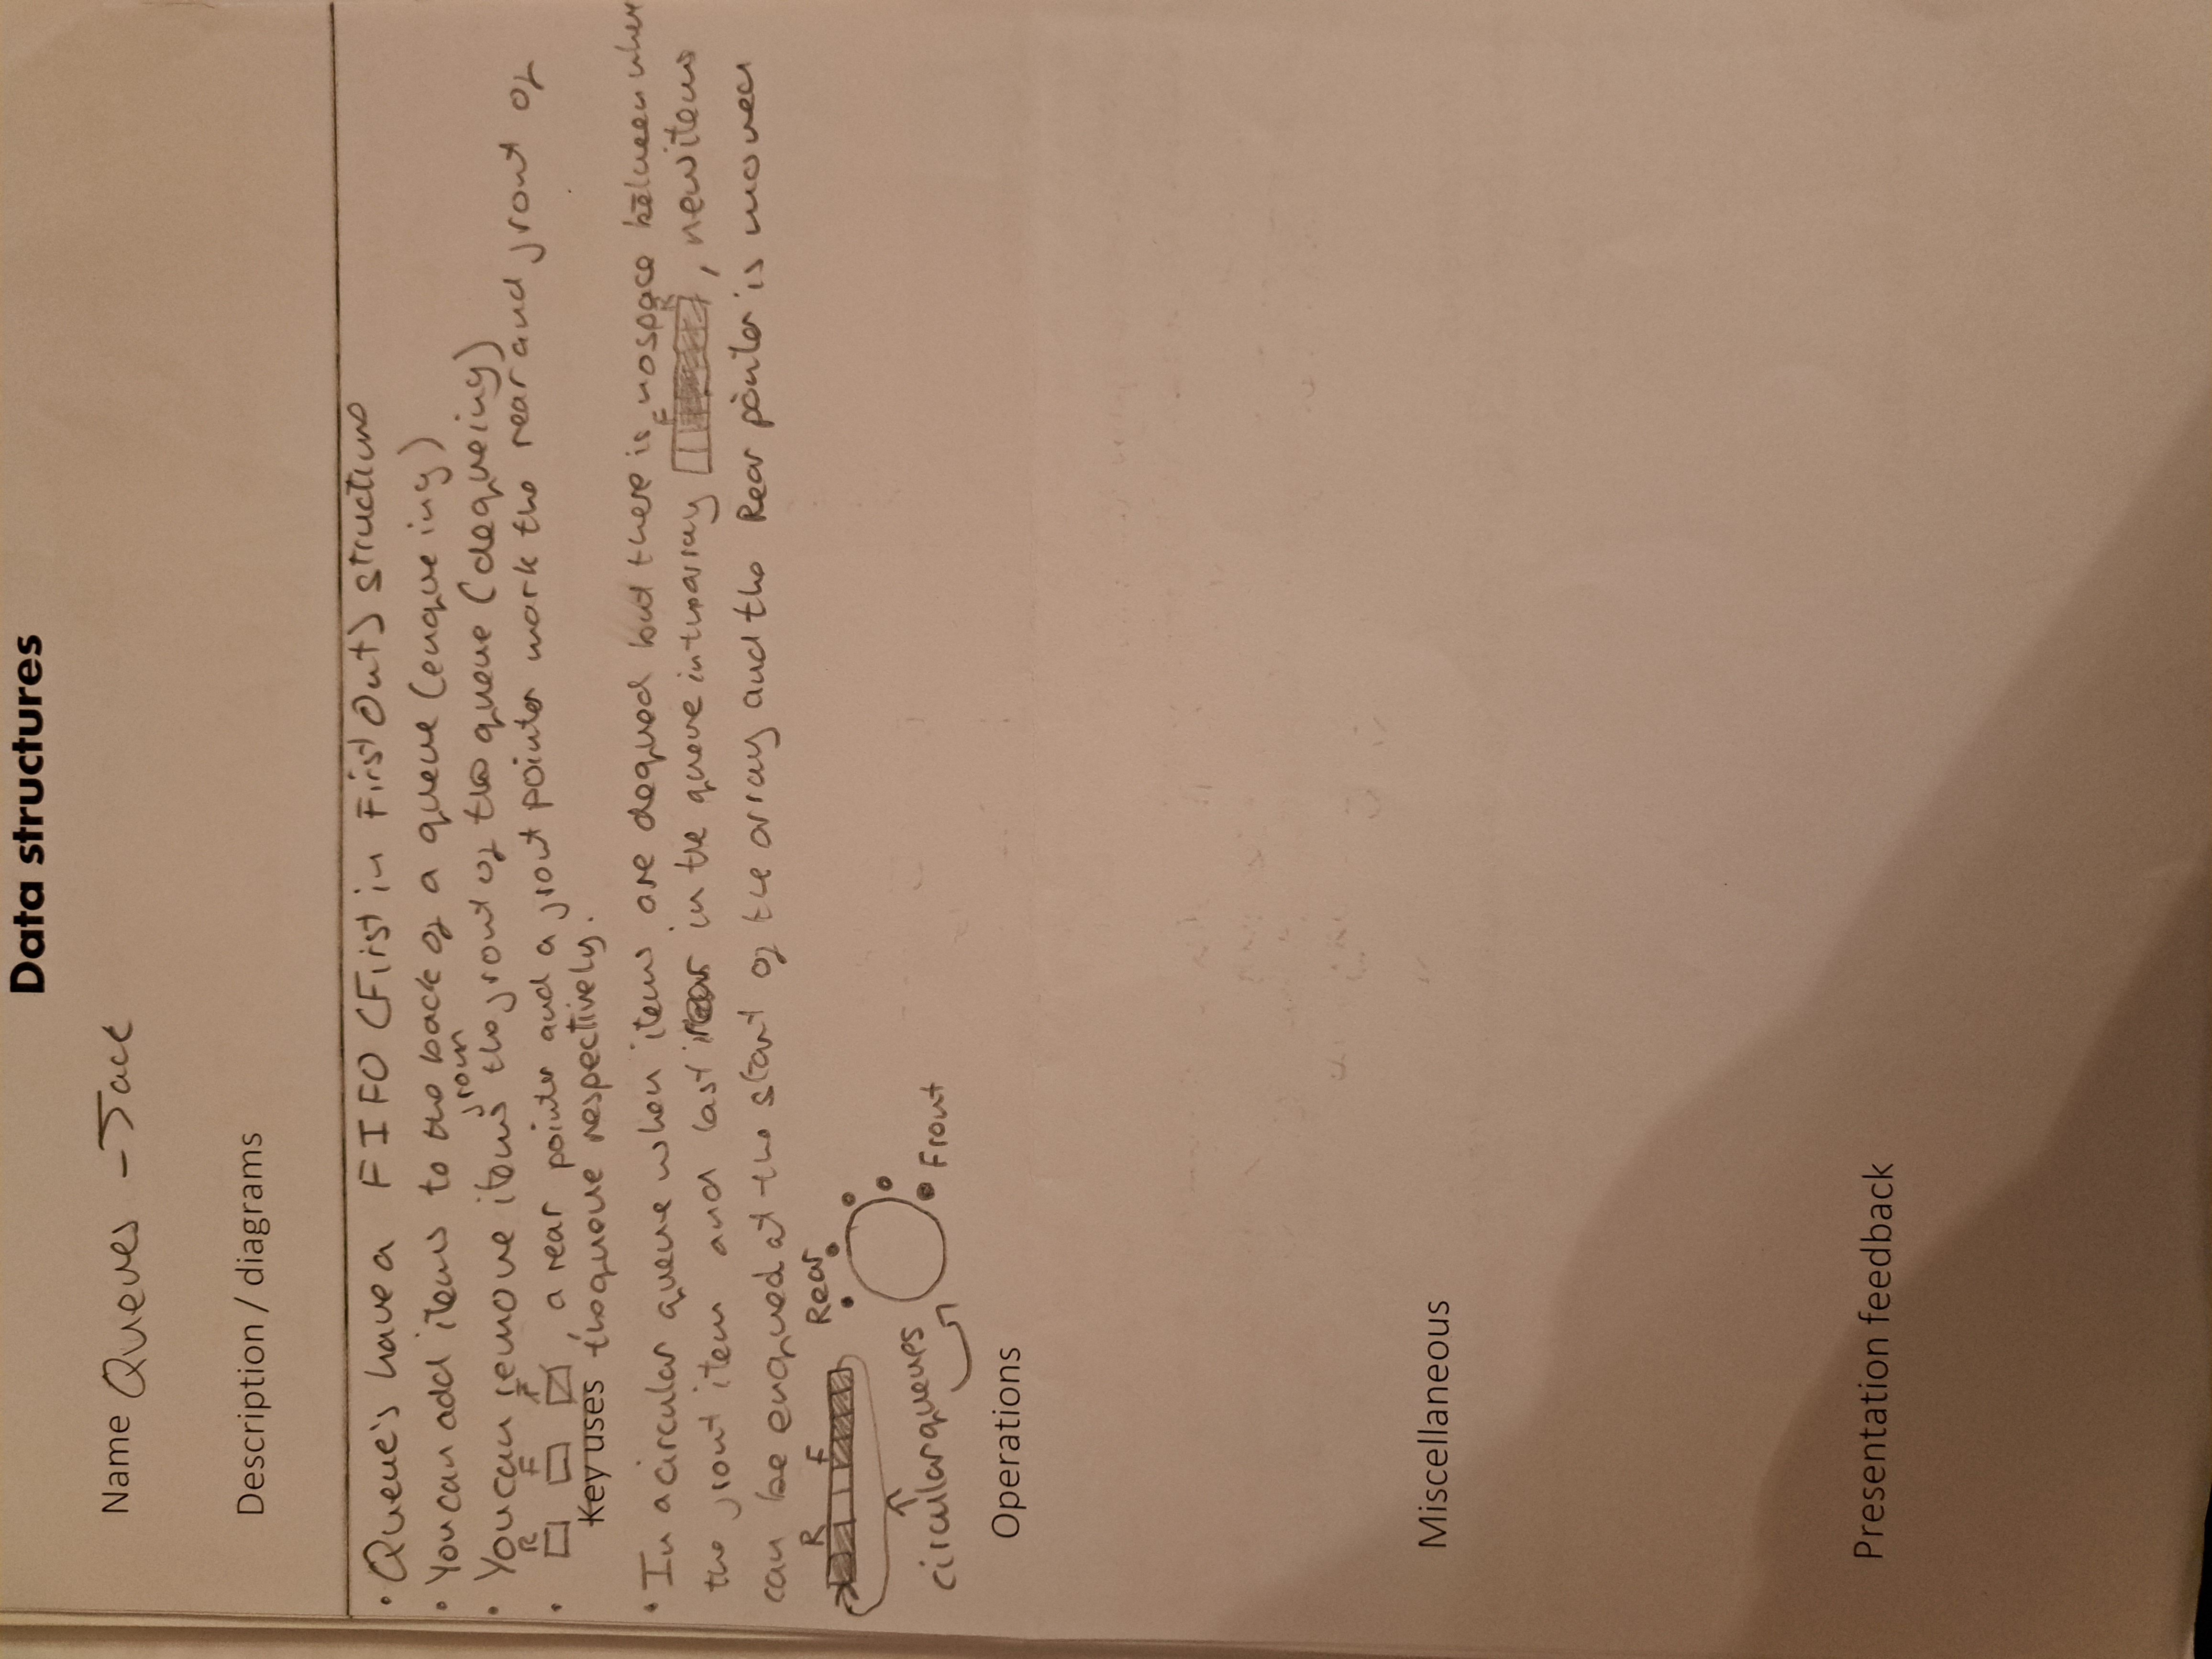 Data structures
Name Queues - Jack
Description / diagrams
• Queue's have a FIFO (First in First Out) structure
• You can add items to the back of a queue (enqueing)
• You can remove items from the front of the queue (dequeing)
R F F
• , a rear pointer and a front pointer mark the rear and front of
Key uses the queue respectively.
• In a circular queue when items are dequed but there is no space between where
F R
the front item and last rear in the queue in the array , new items
can be enqued at the start of the array and the Rear pointer is moved
R F Rear
circular queues Front
Operations
Miscellaneous
Presentation feedback